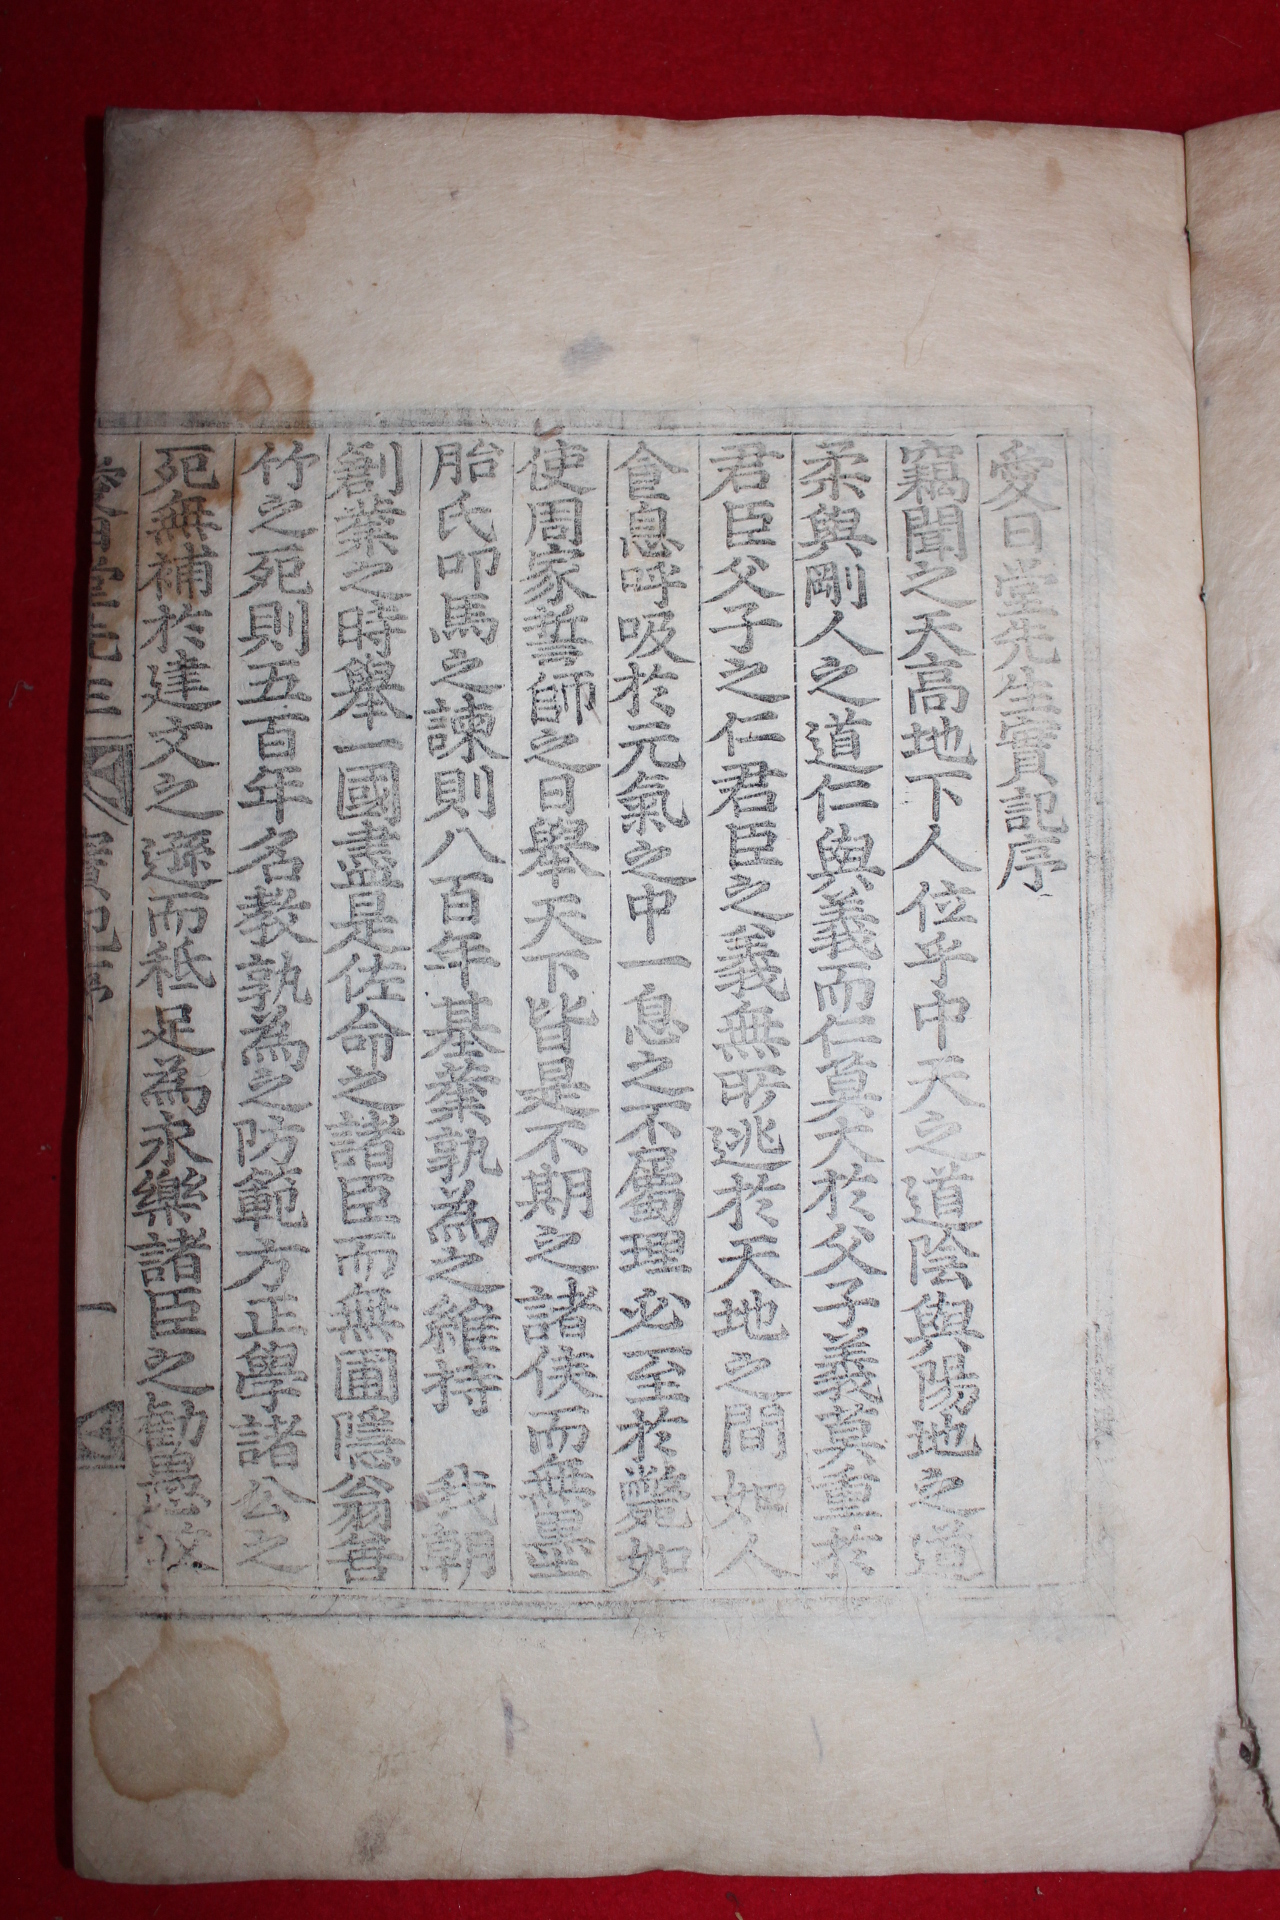 愛日堂先生實記序
竊聞之天高地下人位乎中天之道陰與陽地之道
柔與剛人之道仁與義而仁莫大於父子義莫重於
君臣父子之仁君臣之義無所逃於天地之間如人
食息呼吸於元氣之中一息之不屬理必至於斃如
使周家誓師之日舉天下皆是不期之諸侯而無墨
胎氏叩馬之諫則八百年基業孰為之維持 我朝
創業之時舉一國盡是佐命之諸臣而無圃隱翁善
竹之死則五百年名教孰為之防範方正學諸公之
死無補於建文之遜而秪足為永樂諸臣之勸墨
愛日堂先生 實記序 一